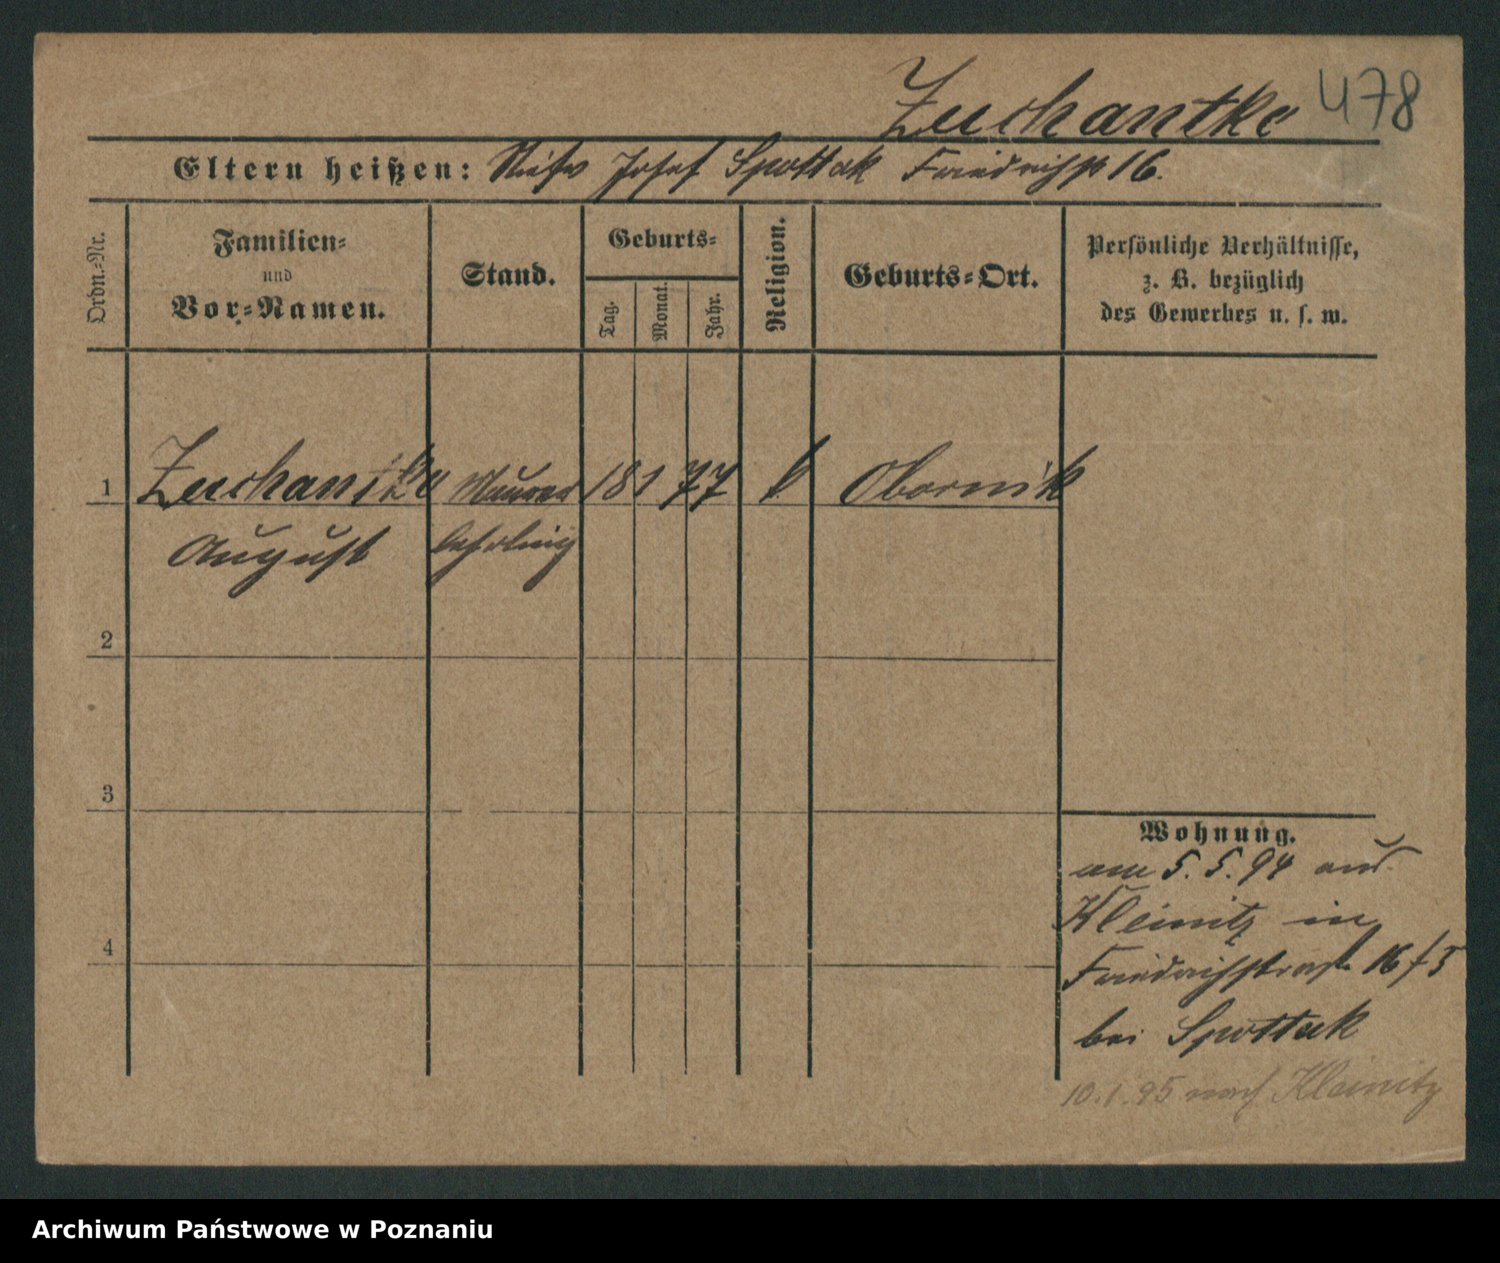 Zuchantke 478
Eltern heißen: Josef Spottak Friedrichstr 16.
Ordn.-Nr.
Familien-
und
Vor-Namen.
Stand.
Geburts-
Tag.
Monat.
Jahr.
Religion.
Geburts-Ort.
Persönliche Verhältnisse,
z. B. bezüglich
des Gewerbes u. s. w.
1 Zuchantke Maurer 18 1 77 k Obornik
August lehrling
2
3
4
Wohnung.
am 5. 5. 94 aus
Kleinitz in
Friedrichstraße 16
bei Spottak
10.1.95 nach Kleinitz
Archiwum Państwowe w Poznaniu